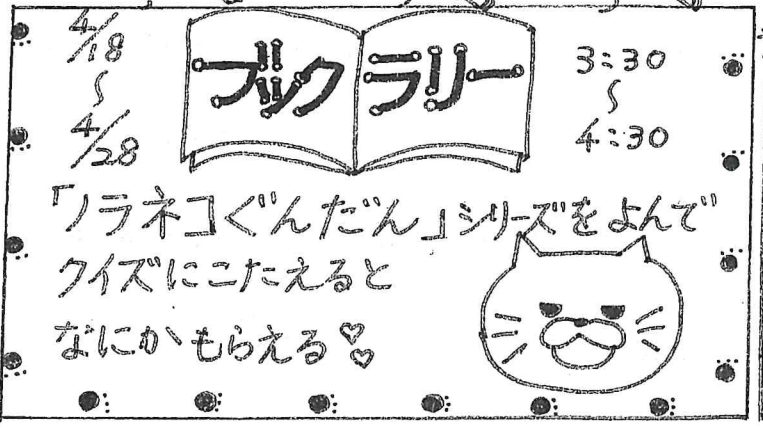 4/18
〜
4/28
ブックラリー
3:30
〜
4:30
「ノラネコぐんだん」シリーズをよんで
クイズにこたえると
なにかもらえる♡♡